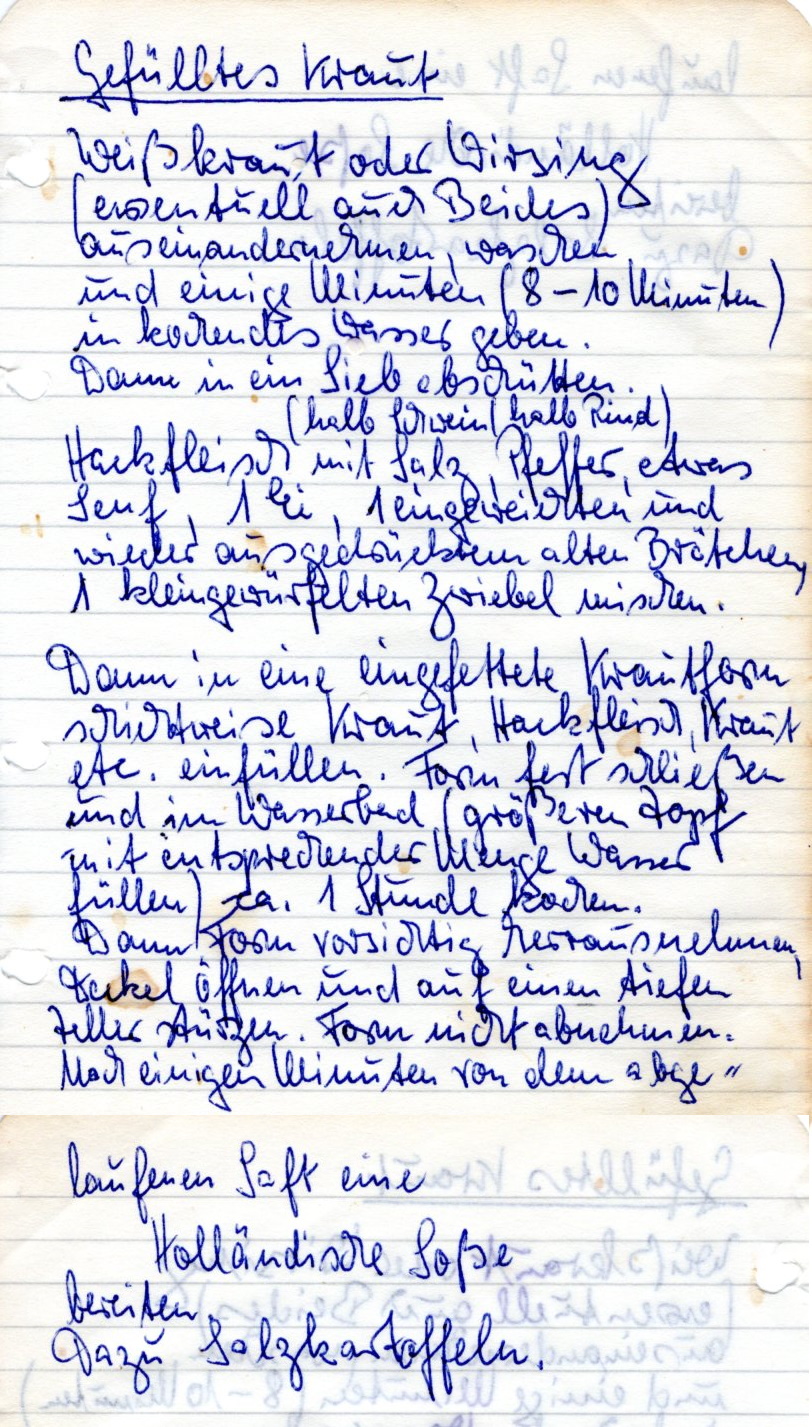 Gefülltes Kraut
Weißkraut oder Wirsing
(eventuell auch Beides)
auseinandernehmen, waschen
und einige Minuten (8-10 Minuten)
in kochendes Wasser geben.
Dann in ein Sieb abschütten.
(halb Schwein/halb Rind)
Hackfleisch mit Salz, Pfeffer, etwas
Senf, 1 Ei, 1 eingeweichten und
wieder ausgedrücktem alten Brötchen,
1 kleingewürfelten Zwiebel mischen.
Dann in eine eingefettete Krautform
schichtweise Kraut, Hackfleisch, Kraut
etc. einfüllen. Form fest schließen
und im Wasserbad (größeren Topf
mit entsprechender Menge Wasser
füllen) ca. 1 Stunde kochen.
Dann Form vorsichtig herrausnehmen,
Deckel öffnen und auf einen tiefen
Teller stürzen. Form nicht abnehmen.
Nach einigen Minuten von dem abge"
laufenen Saft eine
Holländische Soße
bereiten
Dazu Salzkartoffeln.